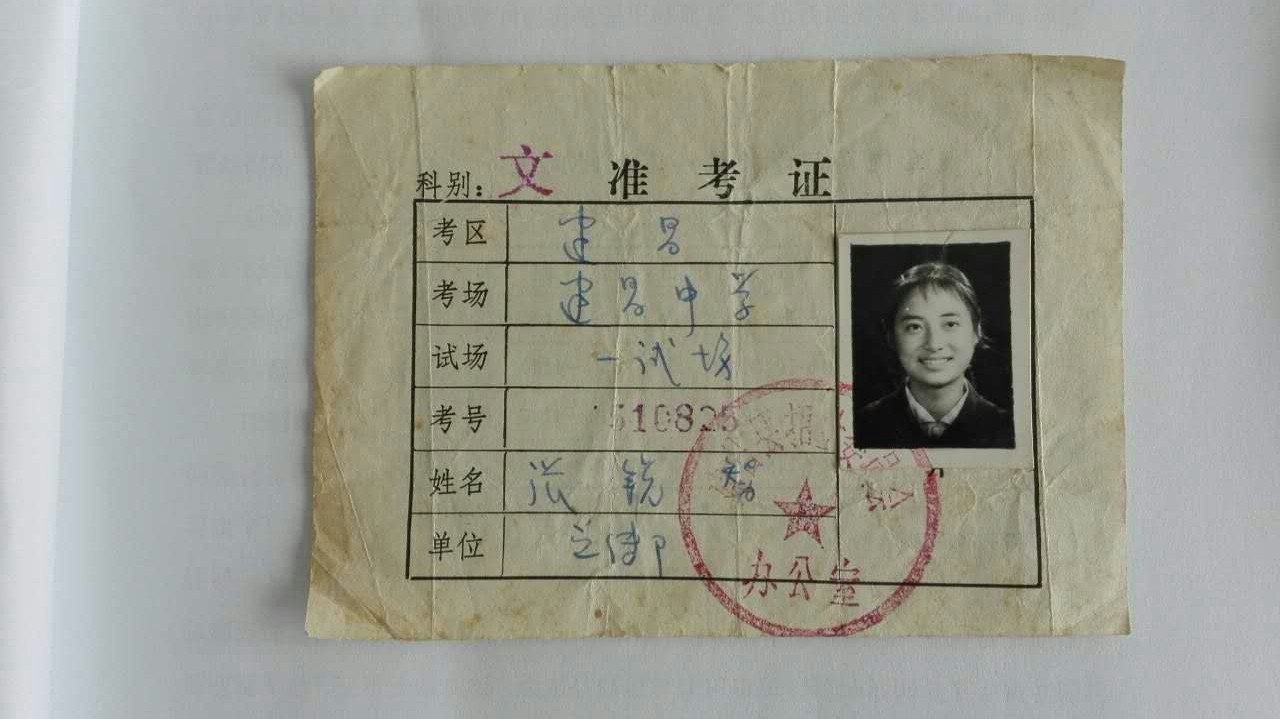 科别：文 准考证
考区 建昌
考场 建昌中学
试场 一试场
考号 510825
姓名 锐
单位
办公室